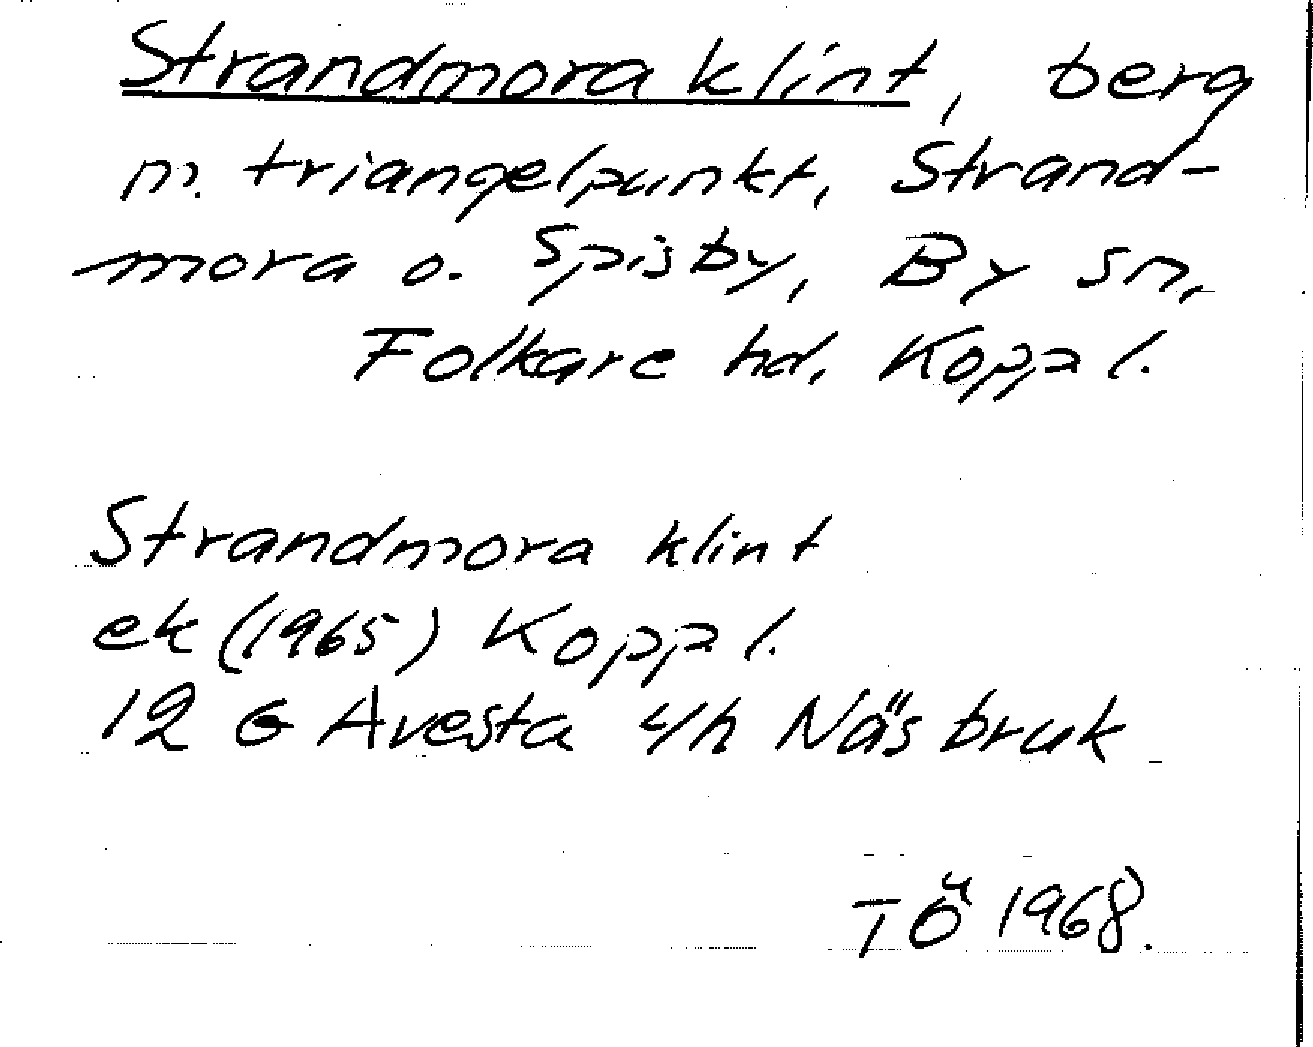 Strandmora klint, berg
m. triangelpunkt, Strand-
mora o. Spisby, By sn,
Folkare hd, Kopp l.
Strandmora klint
ek (1965) Kopp l.
12 G Avesta 4/h Näs bruk
TÖ 1968.